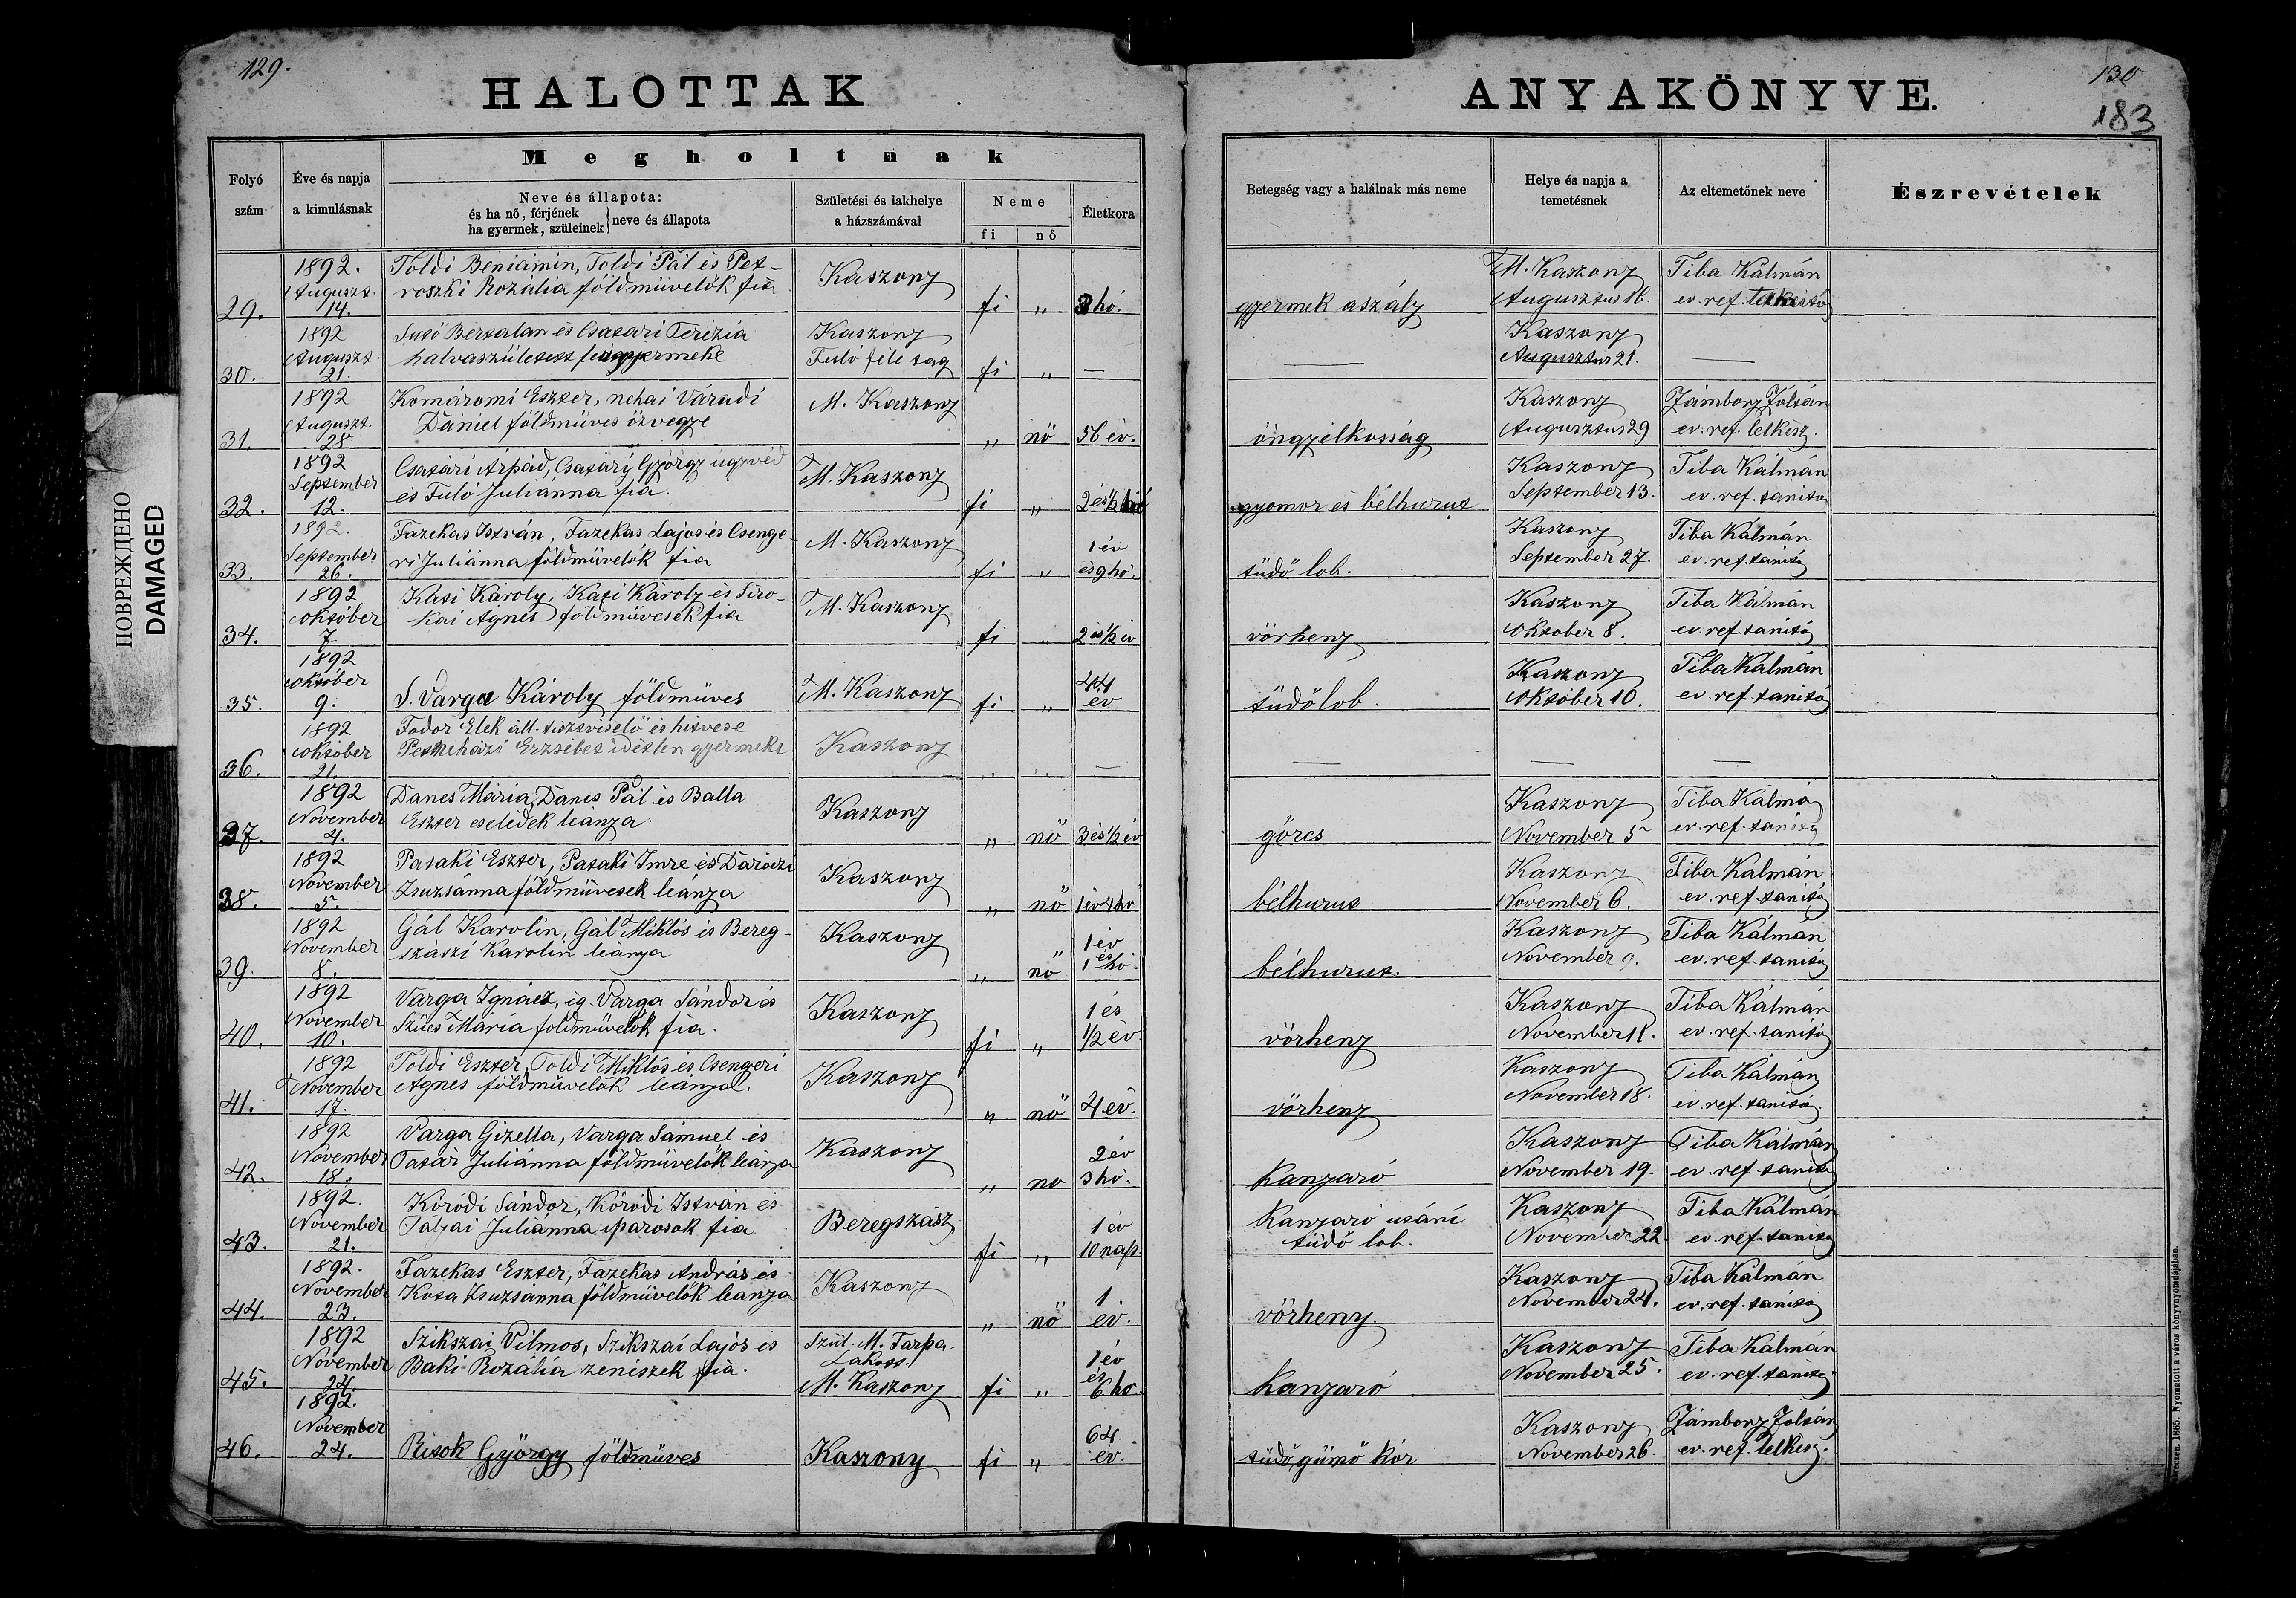 129.
HALOTTAK
Folyó szám
Éve és napja a kimulásnak
Megholtnak
Neve és állapota:
és ha nő, férjének
ha gyermek, szüleinek
neve és állapota
Születési és lakhelye a házszámával
Neme
fi
nő
Életkora
130
183
ANYAKÖNYVE.
Betegség vagy a halálnak más neme
Helye és napja a temetésnek
Az eltemetőnek neve
Észrevételek
ПОВРЕЖДЕНО
DAMAGED
29.
1892. Auguszt. 14.
Toldi Beniámin, Toldi Pál és Pet-
roszki Rozália földmüvelők fia
Kaszony
fi „ 3 hó.
gyermek aszály
M. Kaszony Augusztus 16.
Tiba Kálmán ev. ref.
30.
1892 Auguszt. 21.
Bertalan és Csatári Terézia
halvaszületett gyermeke
Kaszony
fi „ —
—
Kaszony Augusztus 21.
—
31.
1892 Auguszt. 28
Komáromi Eszter, nehai Váradi
Dániel földmüves özvegye
M. Kaszony
„ nö 56 év.
öngyilkosság
Kaszony Augusztus 29
Jámbory Zoltán ev. ref. lelkész.
32.
1892 September 12.
Csatári Árpád, Csatáry György ügyvéd
és Fuló Juliánna fia.
M. Kaszony
fi „ 2 és ½
gyomor és bélhurut
Kaszony September 13.
Tiba Kálmán ev. ref. tanító
33.
1892. September 26.
Fazekas István, Fazekas Lajos és Csenge-
ri Juliánna földmüvelők fia
M. Kaszony
fi „ 1 év és 9 hó.
tüdő lob.
Kaszony September 27.
Tiba Kálmán ev. ref. tanító
34.
1892 Október 7
Kati Károly, Kati Károly és Siro-
kai Ágnes földmüvesek fia
M. Kaszony
fi „ 2 és ½ év
vörheny
Kaszony Október 8.
Tiba Kálmán ev. ref. tanító
35.
1892 Október 9.
S. Varga Károly földmüves
M. Kaszony
fi „ 44 év
tüdőlob.
Kaszony Október 10.
Tiba Kálmán ev. ref. tanító
36.
1892 Október 21.
Fodor Elek áll. tisztviselő és hitvese
Petneházi Erzsébet idétlen gyermeke
Kaszony
„ „ —
— — —
37.
1892 November 4.
Danes Mária, Danes Pál és Balla
Eszter cselédek leánya
Kaszony
„ nö 3 és ½ év
görcs
Kaszony November 5
Tiba Kálmán ev. ref. tanító
38.
1892 November 5.
Pataki Eszter, Pataki Imre és Daróczi
Zsuzsánna földmüvesek leánya
Kaszony
„ nö 1 év hó
bélhurut
Kaszony November 6.
Tiba Kálmán ev. ref. tanító
39.
1892 November 8.
Gál Karolin, Gál Miklós és Bereg-
szászi Karolin leánya
Kaszony
„ nö 1 év és 1 hó.
bélhurut.
Kaszony November 9.
Tiba Kálmán ev. ref. tanító
40.
1892 November 10.
Varga Ignácz, ig. Varga Sándor és
Szücs Mária földmüvelők fia.
Kaszony
fi „ 1 és ½ év.
vörheny
Kaszony November 11.
Tiba Kálmán ev. ref. tanító
41.
1892 November 17.
Toldi Eszter, Toldi Miklós és Csengeri
Ágnes földmüvelők leánya.
Kaszony
„ nö 4 év.
vörheny
Kaszony November 18.
Tiba Kálmán ev. ref. tanító.
42.
1892 November 18.
Varga Gizella, Varga Sámuel és
Tatár Juliánna földmüvelők leánya
Kaszony
„ no 2 év 3 hó.
Kanyaró
Kaszony November 19.
Tiba Kálmán ev. ref. tanító
43.
1892. November 21.
Kóródi Sándor, Kóródi István és
Tabjai Juliánna iparosok fia
Beregszász
fi „ 1 év 10 nap.
Kanyaró utáni
tüdő lob.
Kaszony November 22
Tiba Kálmán ev. ref. tanító
44.
1892. November 23.
Fazekas Eszter, Fazekas András és
Kota Zsuzsánna földmüvelők leánya
Kaszony
„ nö 1 év.
vörheny.
Kaszony November 24.
Tiba Kálmán ev. ref. tanító
45.
1892 November 24.
Szikszai Vilmos, Szikszai Lajos és
Baki Rozália zenészek fia.
Szül. M. Tarpa.
Lakott.
M. Kaszony
fi „ 1 év és 6 hó.
Kanyaró
Kaszony November 25.
Tiba Kálmán ev. ref. tanító
46.
1892. November 24.
Risok György földmüves
Kaszony
fi „ 64. év.
tüdő, gümő kór
Kaszony November 26.
Jámbory Zoltán ev. ref. lelkész.
1865. Nyomatott a város könyvnyomdájában.